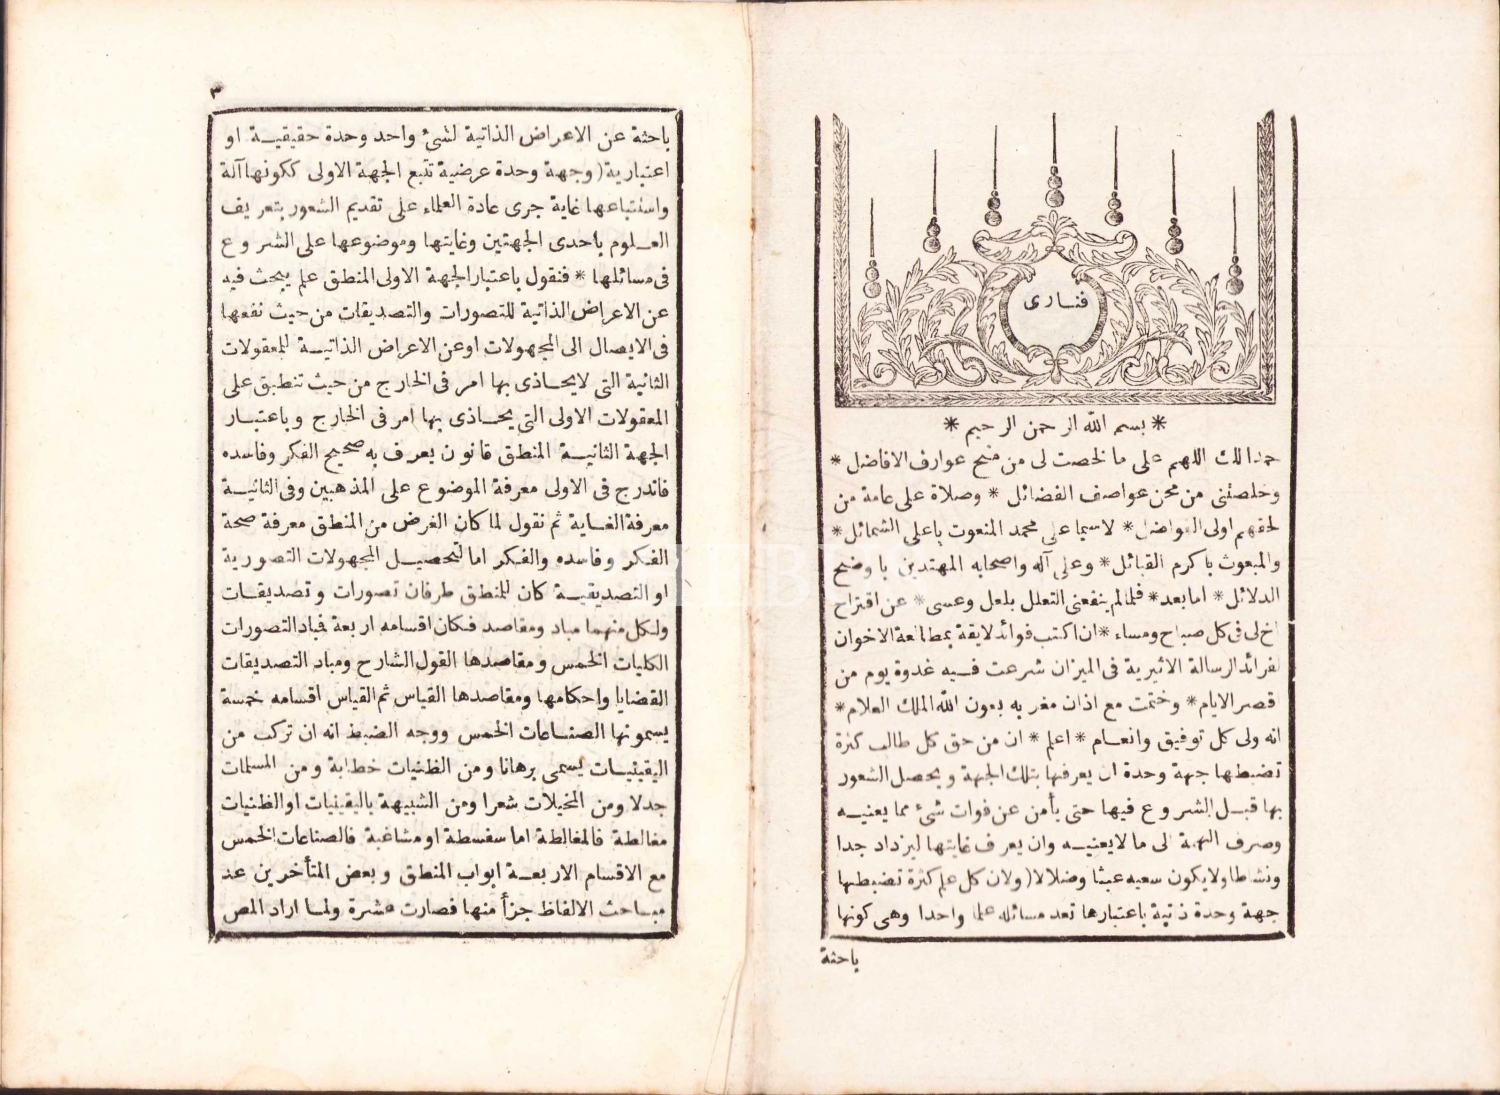 فنارى
* بسم الله الرحمن الرحيم *
حمدا لك اللهم على ما لخصت لى من منح عوارف الافاضل *
وخلصتنى من محن عواصف الفضائل * وصلاة على عامة من
لحقهم اولى الفواضل * لا سيما على محمد المنعوت باعلى الشمائل *
والمبعوث باكرم القبائل * وعلى آله واصحابه المهتدين باوضح
الدلائل * اما بعد * فلما لم ينفعنى التعلل بلعل وعسى * عن اقتراح
اخ لى فى كل صباح ومساء * ان اكتب فوائد لايقة بمطالعة الاخوان
لفرائد الرسالة الاثيرية فى الميزان شرعت فيه غدوة يوم من
قصر الايام * وختمت مع اذان مغربه بعون الله الملك العلام *
انه ولى كل توفيق وانعام * اعلم * ان من حق كل طالب كثرة
تضبطها جهة وحدة ان يعرفها بتلك الجهة ويحصل الشعور
بها قبل الشروع فيها حتى يأمن عن فوات شئ مما يعنيه
وصرف الهمة الى ما لا يعنيه وان يعرف غايتها ليزداد جدا
ونشاطا ولا يكون سعيه عبثا وضلالا ( ولان كل علم كثرة تضبطها
جهة وحدة ذاتية باعتبارها تعد مسائله علما واحدا وهى كونها
باحثة
٣
باحثة عن الاعراض الذاتية لشئ واحد وحدة حقيقية او
اعتبارية ( وجهة وحدة عرضية تتبع الجهة الاولى ككونها آلة
واستتباعها غاية جرى عادة العلماء على تقديم الشعور بتعريف
العلوم باحدى الجهتين وغايتها وموضوعها على الشروع
فى مسائلها * فنقول باعتبار الجهة الاولى المنطق علم يبحث فيه
عن الاعراض الذاتية للتصورات والتصديقات من حيث نفعها
فى الايصال الى المجهولات او عن الاعراض الذاتية للمعقولات
الثانية التى لا يحاذى بها امر فى الخارج من حيث تنطبق على
المعقولات الاولى التى يحاذى بها امر فى الخارج وباعتبار
الجهة الثانية المنطق قانون يعرف به صحيح الفكر وفاسده
فاندرج فى الاولى معرفة الموضوع على المذهبين وفى الثانية
معرفة الغاية ثم نقول لما كان الغرض من المنطق معرفة صحة
الفكر وفاسده والفكر اما لتحصيل المجهولات التصورية
او التصديقية كان للمنطق طرفان تصورات وتصديقات
ولكل منهما مباد ومقاصد فكان اقسامه اربعة فباد التصورات
الكليات الخمس ومقاصدها القول الشارح ومباد التصديقات
القضايا واحكامها ومقاصدها القياس ثم القياس اقسامه خمسة
يسمونها الصناعات الخمس ووجه الضبط انه ان تركب من
اليقينيات يسمى برهانا ومن الظنيات خطابة ومن المسلمات
جدلا ومن المخيلات شعرا ومن الشبيهة باليقينيات او الظنيات
مغالطة فالمغالطة اما سفسطة او مشاغبة فالصناعات الخمس
مع الاقسام الاربعة ابواب المنطق وبعض المتأخرين عد
مباحث الالفاظ جزأ منها فصارت عشرة ولما اراد المص